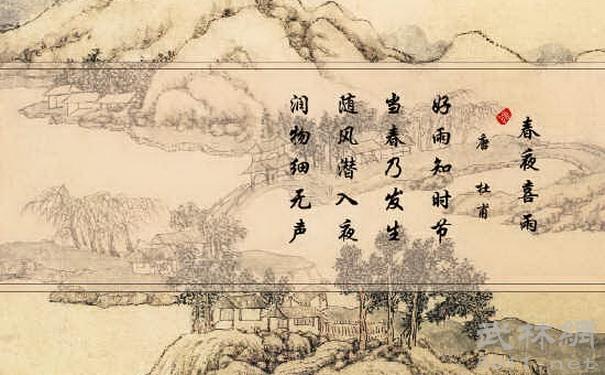 春夜喜雨
唐 杜甫
好雨知时节
当春乃发生
随风潜入夜
润物细无声
武林網